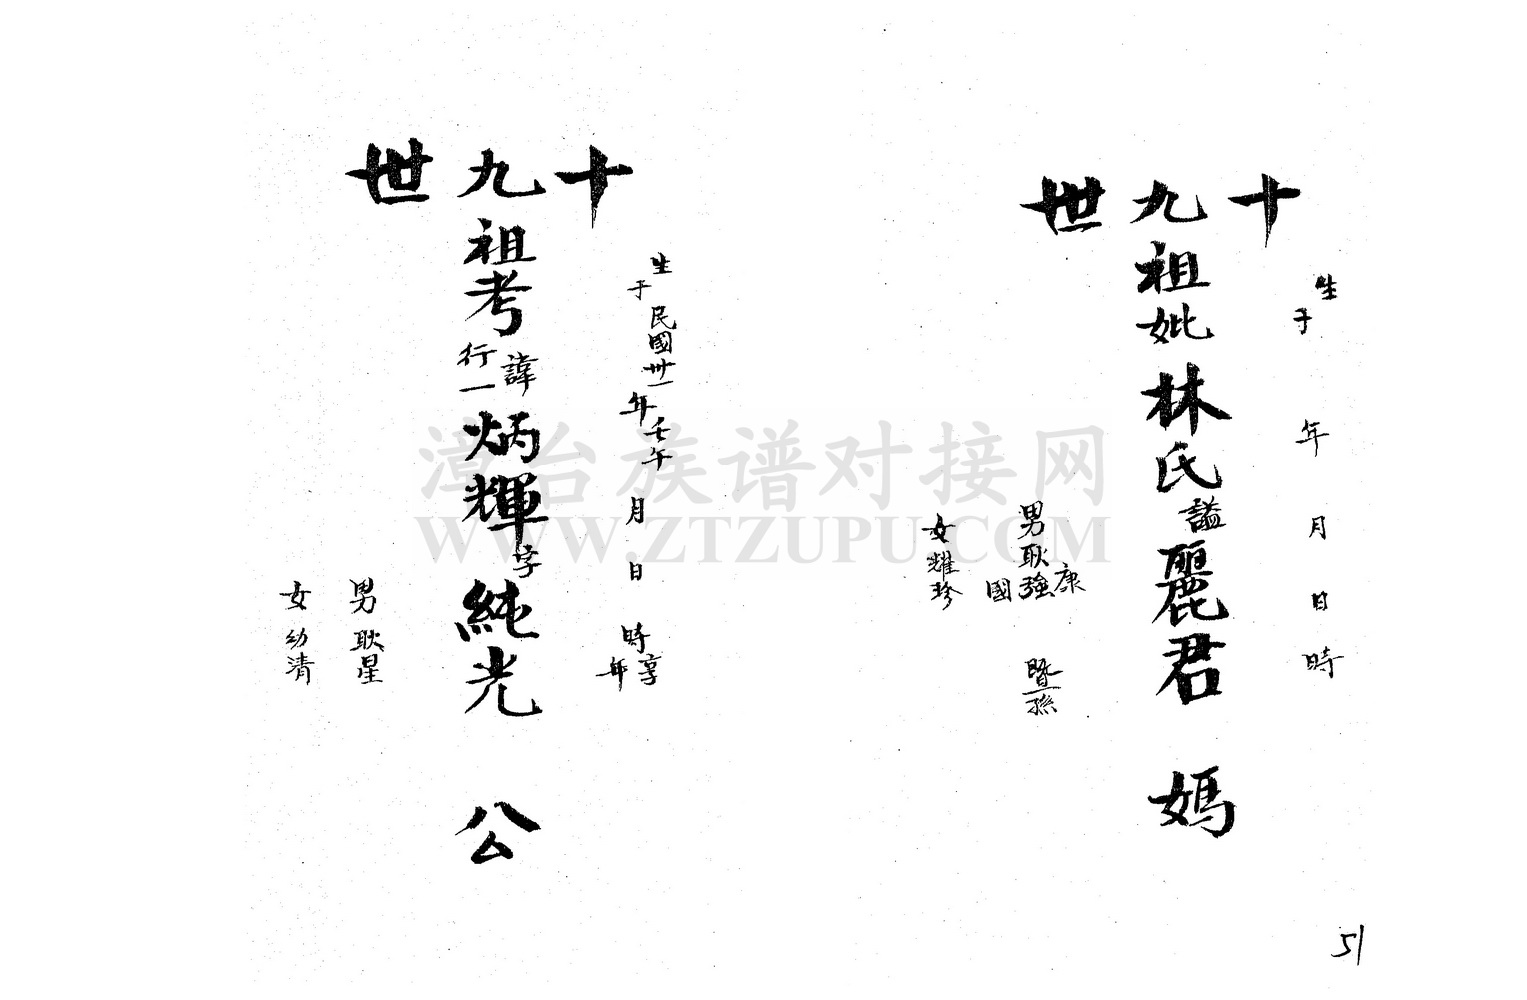 十九世
生于 年 月 日 時
祖妣林氏謚麗君媽
男耿強 康 國 暨孫
女耀珍
十九世
生于民國卅一年壬午 月 日 時享年
祖考諱行一炳輝字純光公
男耿星
女幼清
51
漳台族谱对接网
WWW.ZTZUPU.COM